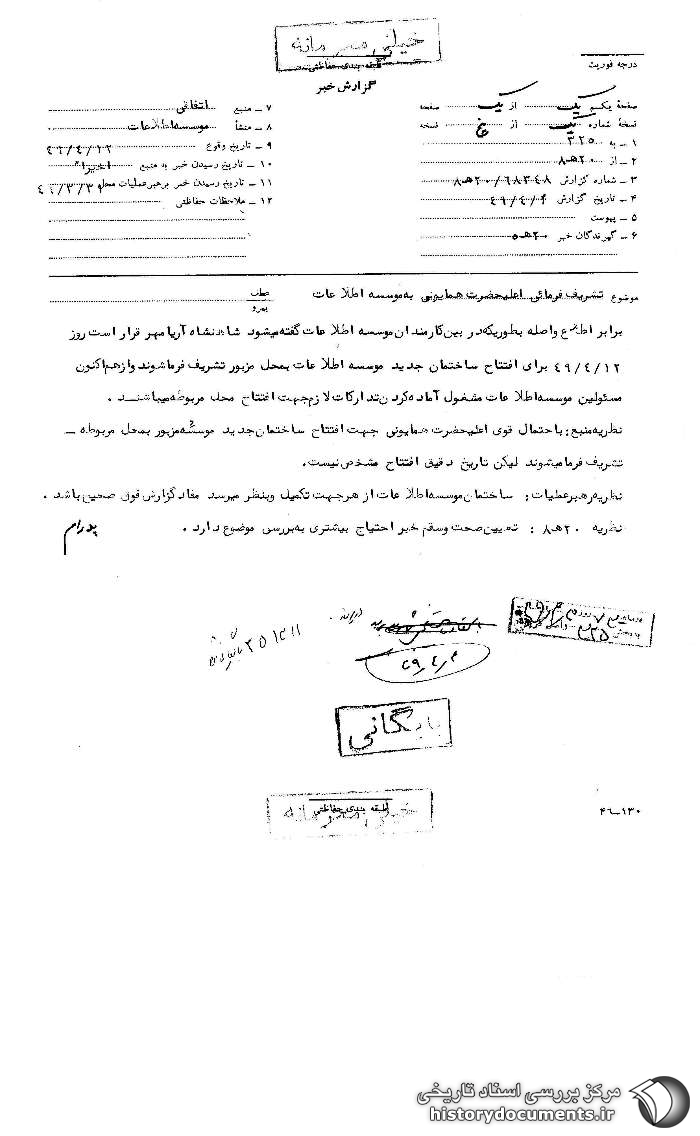 خیلی محرمانه
طبقه بندی حفاظتی
گزارش خبر
درجه فوریت
صفحهٔ یکم یک از یک صفحه
نسخهٔ شماره یک از پنج نسخه
۱ ـ به ۳۲۵
۲ ـ از ۲۰هـ۸
۳ ـ شماره گزارش ۶۸۳۴۸/۲۰هـ۸
۴ ـ تاریخ گزارش ۴۹/۴/۴
۵ ـ پیوست
۶ ـ گیرندگان خبر ۲۰هـ۵
۷ ـ منبع اتفاقی
۸ ـ منشأ موسسه اطلاعات
۹ ـ تاریخ وقوع
۱۰ ـ تاریخ رسیدن خبر به منبع اخیرا"
۱۱ ـ تاریخ رسیدن خبر برهبر عملیات محل
۱۲ ـ ملاحظات حفاظتی
موضوع تشریف فرمائی اعلیحضرت همایونی به موسسه اطلاعات
عطف
پیرو
برابر اطلاع واصله بطوریکه در بین کارمندان موسسه اطلاعات گفته میشود شاهنشاه آریامهر قرار است روز
۴۹/۴/۱۲ برای افتتاح ساختمان جدید موسسه اطلاعات بمحل مزبور تشریف فرما شوند و از هم اکنون
مسئولین موسسه اطلاعات مشغول آماده کردن تدارکات لازم جهت افتتاح محل مربوطه میباشند .
نظریه منبع : باحتمال قوی اعلیحضرت همایونی جهت افتتاح ساختمان جدید موسسه مزبور بمحل مربوطه ـ
تشریف فرما میشوند لیکن تاریخ دقیق افتتاح مشخص نیست .
نظریه رهبر عملیات : ساختمان موسسه اطلاعات از هر جهت تکمیل و بنظر میرسد مفاد گزارش فوق صحیح باشد .
نظریه ۲۰هـ۸ : تعیین صحت و سقم خبر احتیاج بیشتری به بررسی موضوع دارد . پدرام
بایگانی
خیلی محرمانه
طبقه بندی حفاظتی
۴۶ـ۱۳۰
مرکز بررسی اسناد تاریخی
historydocuments.ir